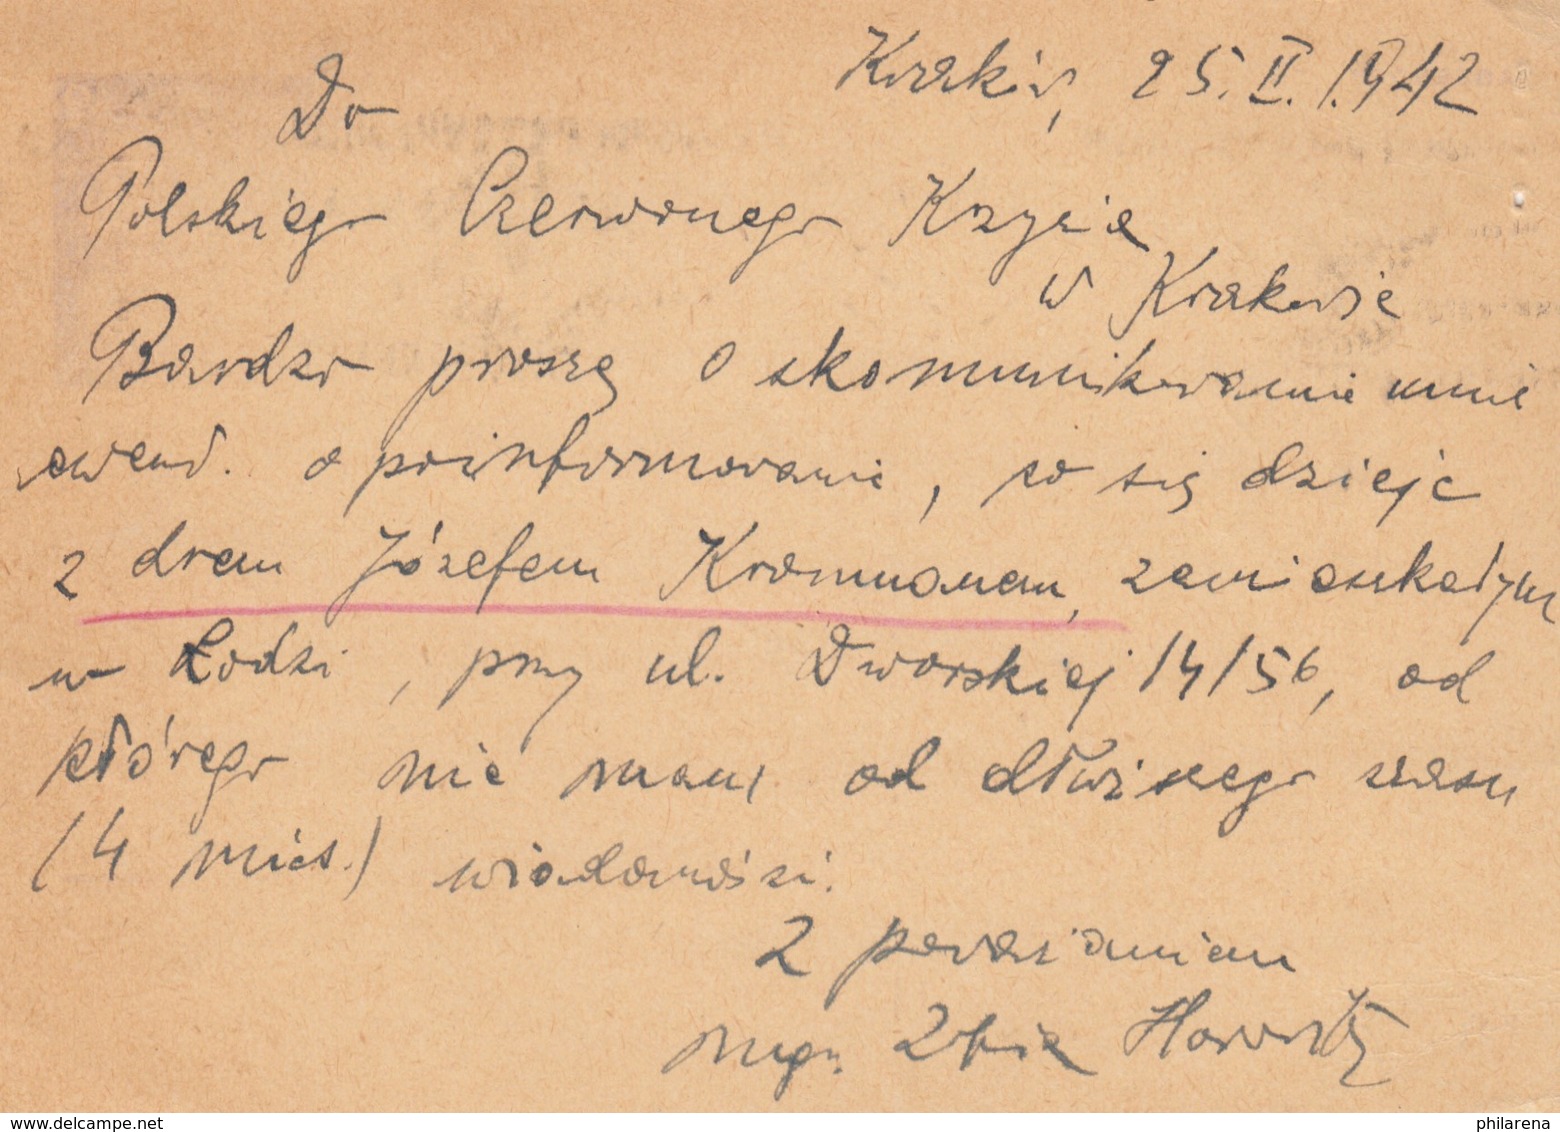 Kraków, 25. II. 1942
Do
Polskiego Czerwonego Krzyża
w Krakowie
Bardzo proszę o skomunikowanie mnie
ewent. o poinformowanie, co się dzieje
z drem Józefem Kromanem, zamieszkałym
w Łodzi, przy ul. Dworskiej 14/56, od
którego nie mam od dłuższego czasu
(4 mies.) wiadomości.
Z poważaniem
mgr. Horowitz
delcampe.net
philarena